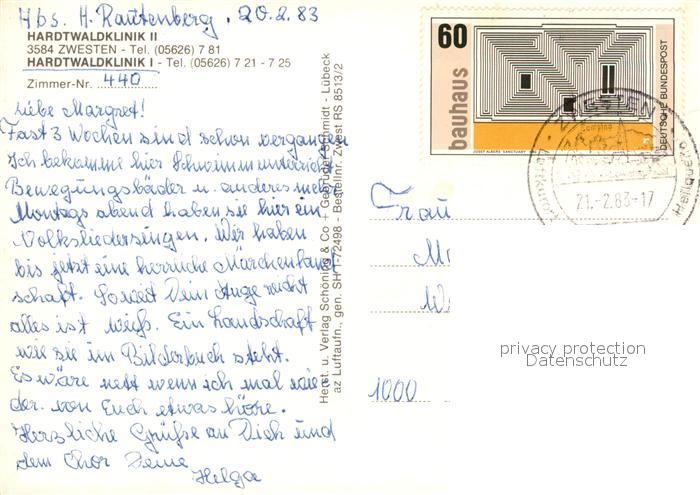 Abs. H. Rautenberg. 20.2.83
HARDTWALDKLINIK II
3584 ZWESTEN - Tel. (05626) 7 81
HARDTWALDKLINIK I - Tel. (05626) 7 21 - 7 25
Zimmer-Nr. 440
Liebe Margret!
Fast 3 Wochen sind schon vergangen
Ich bekomme hier Schwimmunterricht
Bewegungsbäder u. anderes mehr
Montags abend haben sie hier ein
Volksliedersingen. Wir haben
bis jetzt eine herrliche Märchenland-
schaft. Soweit Dein Auge reicht
alles ist weiß. Ein Landschaft
wie sie im Bilderbuch steht.
Es wäre nett wenn ich mal wie-
der von Euch etwas höre.
Herzliche Grüße an Dich und
dem Chor Deine
Helga
Herst. u. Verlag Schöning & Co + Gebrüder Schmidt - Lübeck
az Luftaufn., gen. SH 1-72498 - Bestellnr. Zwest RS 8513/2
60
bauhaus
JOSEF ALBERS SANCTUARY
DEUTSCHE BUNDESPOST
ZWESTEN
Camping
21.-2.83-17
Luftkurort
Heilquelle
Frau
M
W
1000
privacy protection
Datenschutz